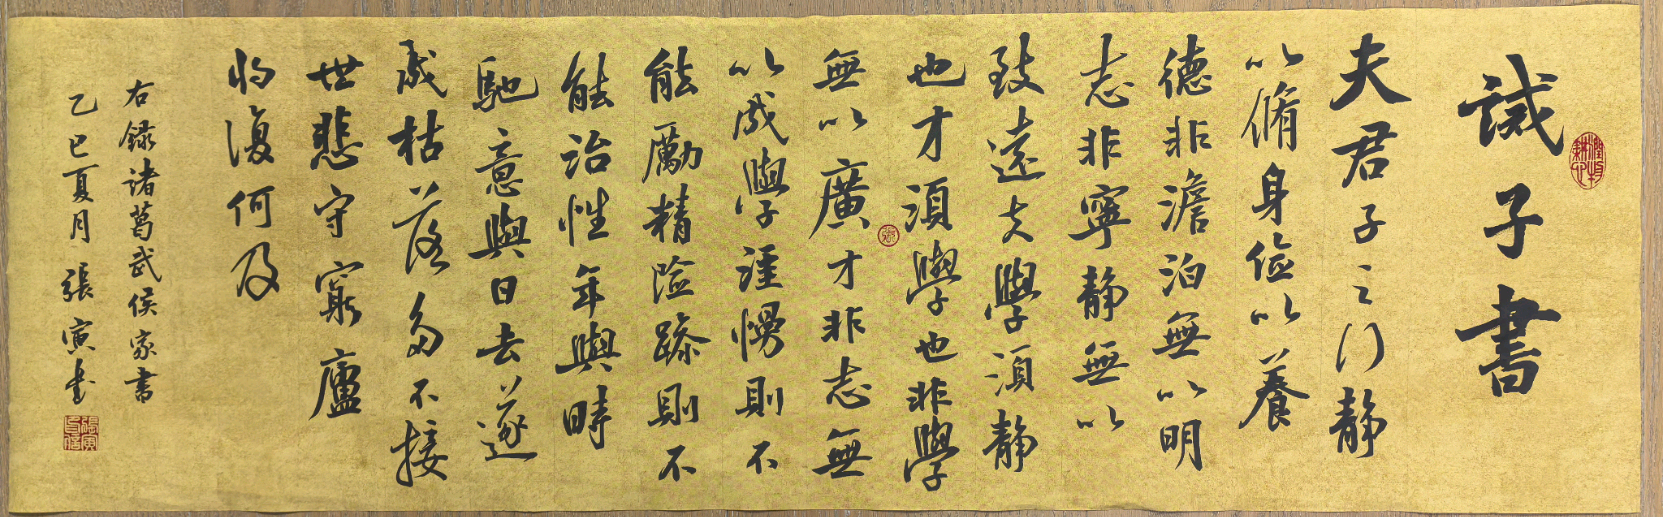 誡子書
夫君子之行静
以脩身俭以養
德非澹泊無以明
志非寧静無以
致遠夫學須静
也才須學也非學
無以廣才非志無
以成學淫慢則不
能勵精险躁則不
能治性年與時
馳意與日去遂
成枯落多不接
世悲守窮廬
将復何及
右録諸葛武侯家書
乙巳夏月 張寅書